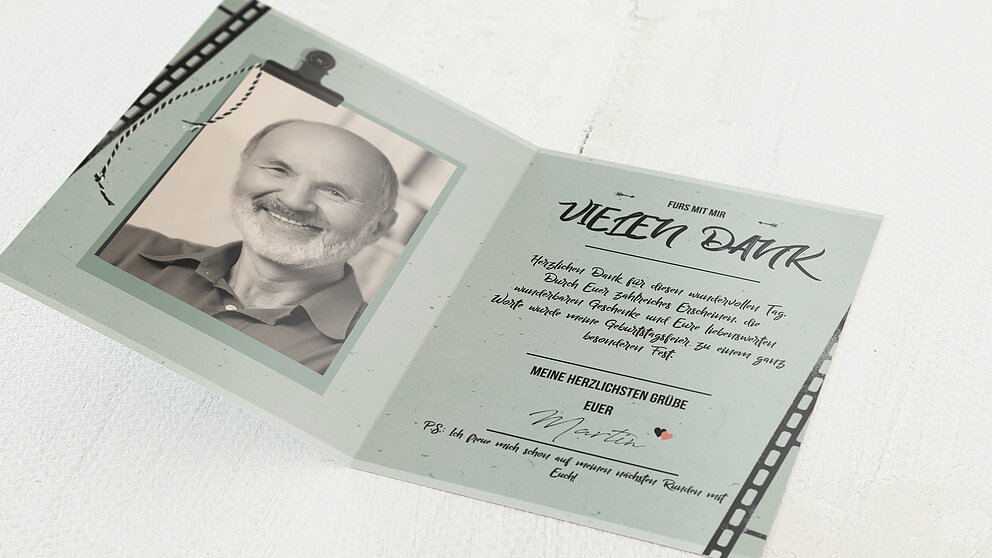 FURS MIT MIR
VIELEN DANK
Herzlichen Dank für diesen wundervollen Tag.
Durch Euer zahlreiches Erscheinen, die
wunderbaren Geschenke und Eure liebenswerten
Worte wurde meine Geburtstagsfeier zu einem ganz
besonderen Fest
MEINE HERZLICHSTEN GRÜßE
EUER
Martin
P.S.: Ich freue mich schon auf meinen nächsten Runden mit
Euch!